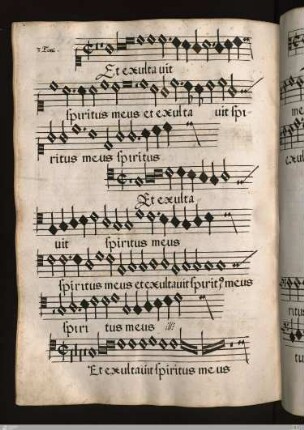 Et exultauit
spiritus meus et exulta uit spi-
ritus meus spiritus
Et exulta
uit spiritus meus
spiritus meus et exultauit spirit9 meus
spiri tus meus
Et exultauit spiritus meus